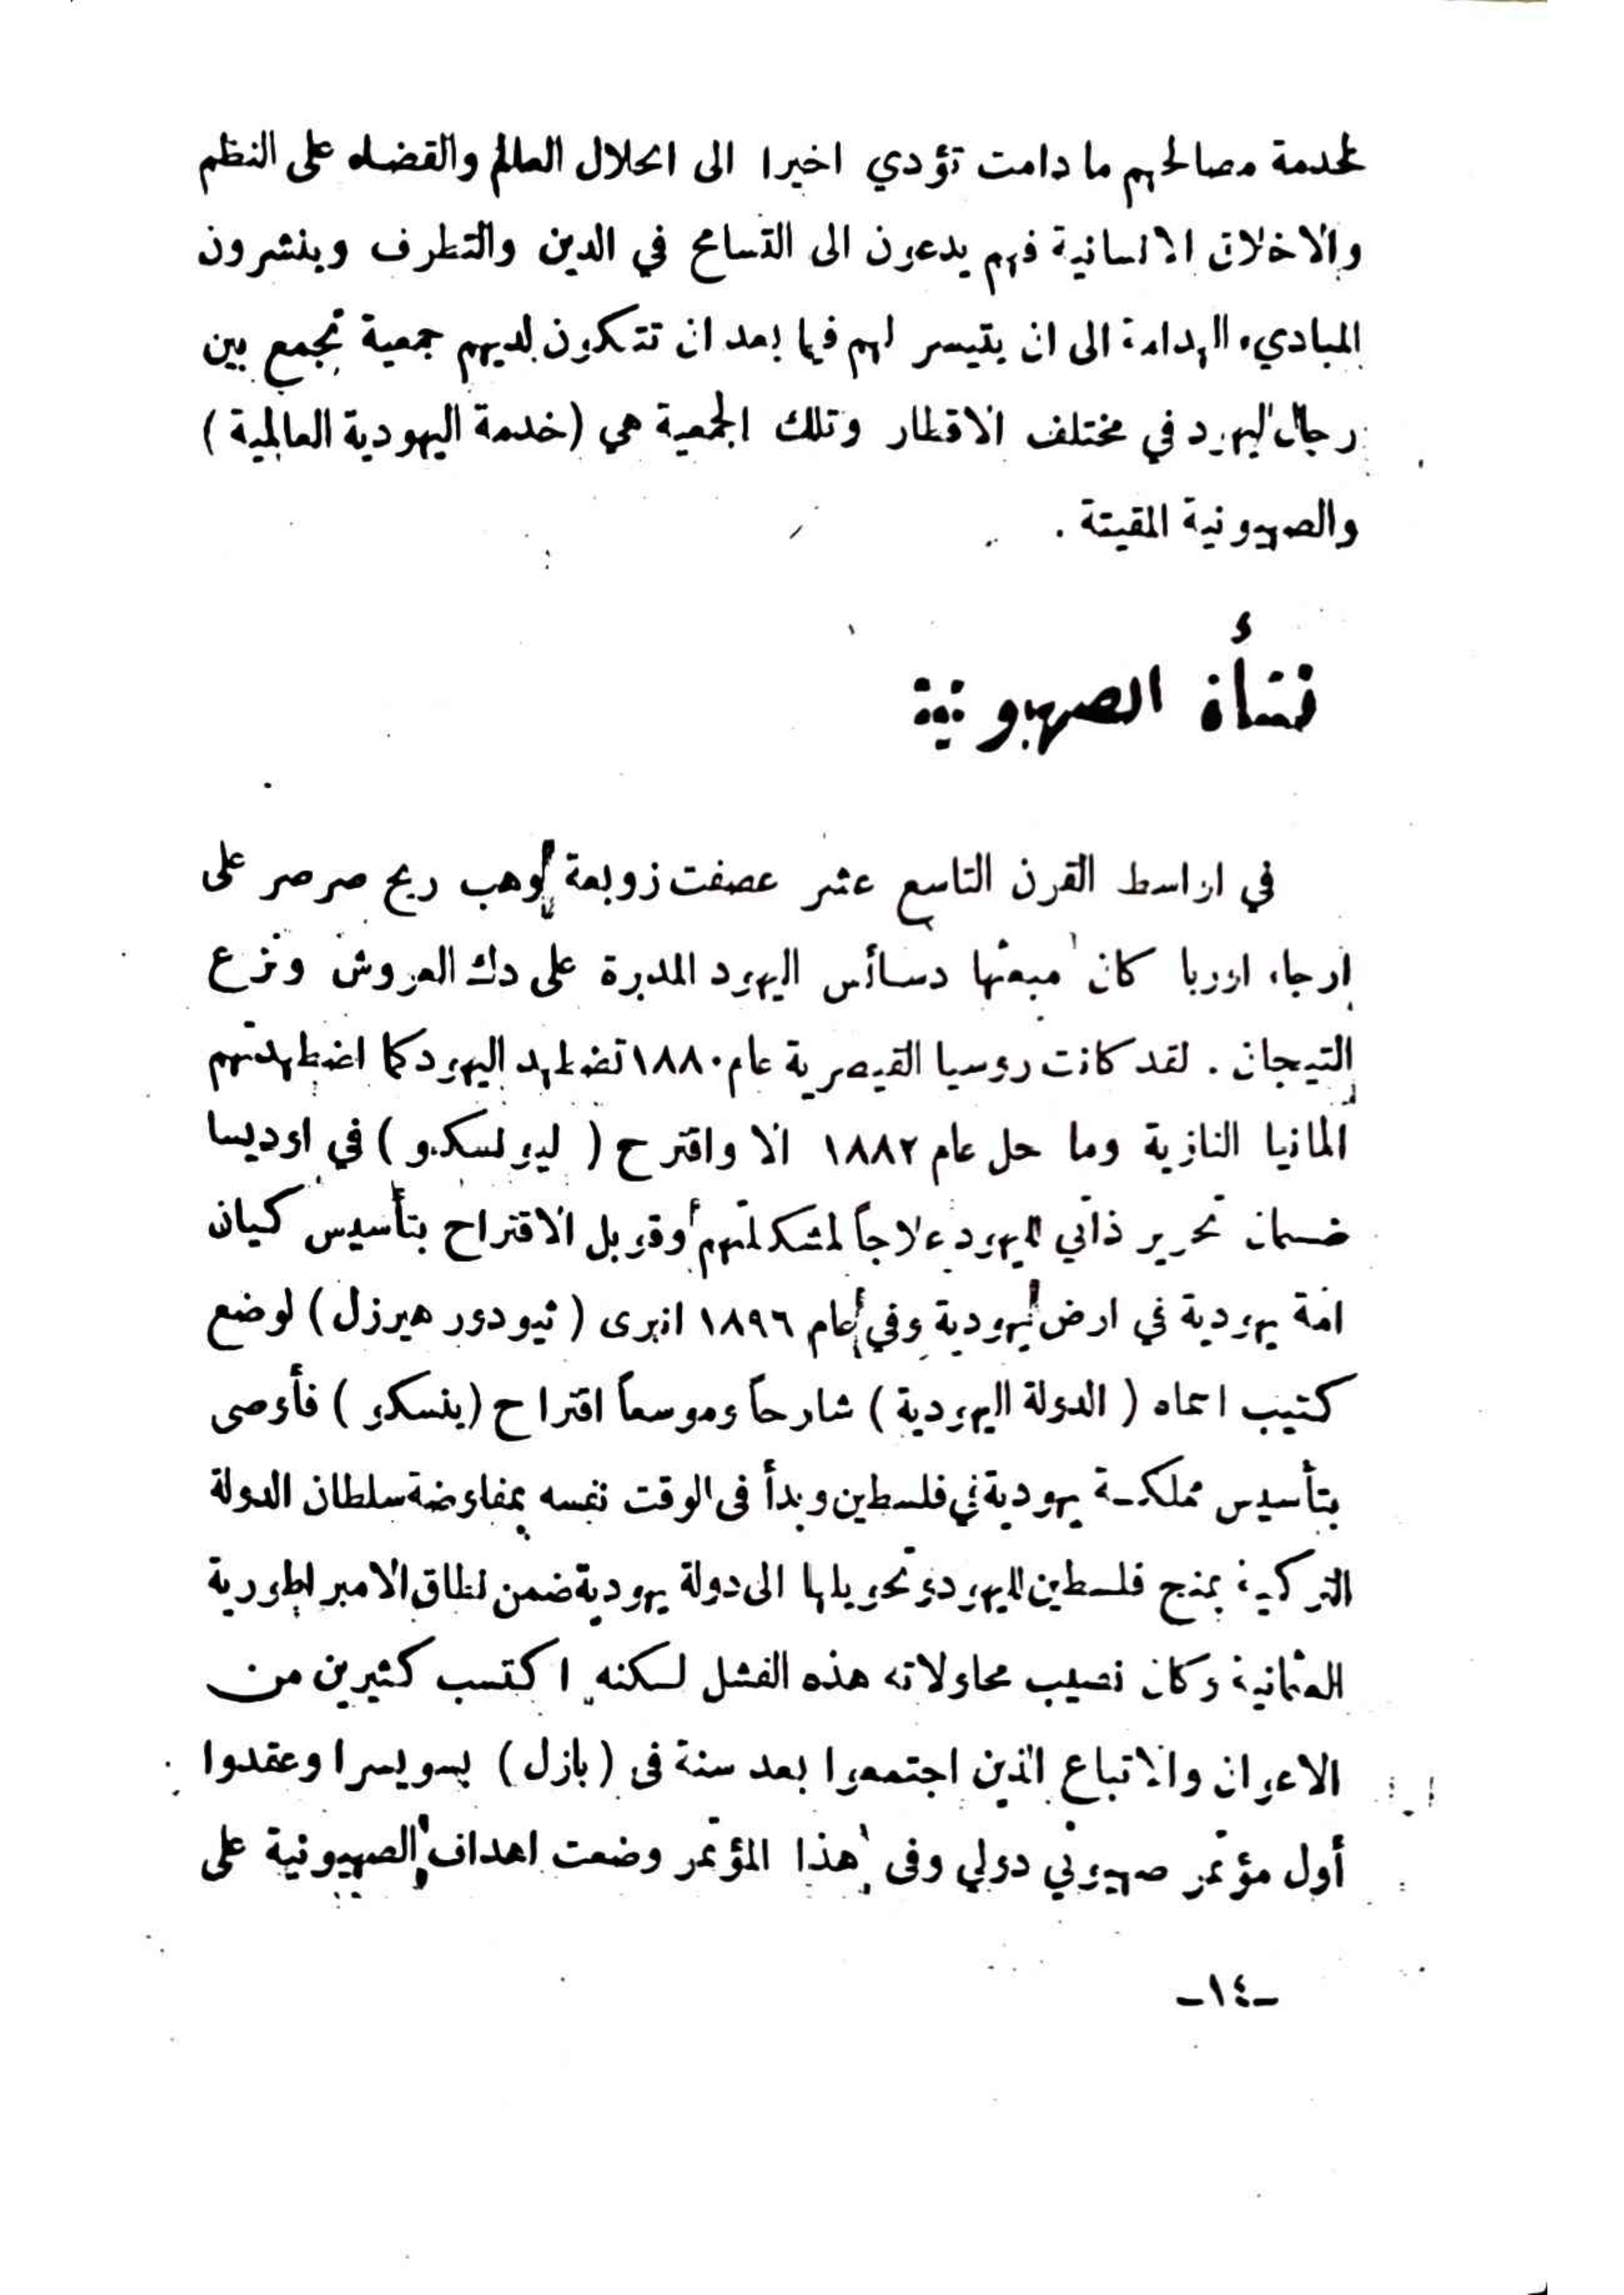 لخدمة مصالحهم ما دامت تؤدي اخيرا الى انحلال العالم والقضاء على النظم
والاخلاق الانسانية فهم يدعون الى التسامح في الدين والتطرف وينشرون
المباديء الهدامة الى ان يتيسر لهم فيما بعد ان تتكون لديهم جمعية تجمع بين
رجال اليهود في مختلف الاقطار وتلك الجمعية هي (خدمة اليهودية العالمية)
والصهيونية المقيتة .
نشأة الصهيونية
في اواسط القرن التاسع عشر عصفت زوبعة وهب ريح صرصر على
ارجاء اوربا كان مبعثها دسائس اليهود المدبرة على دك العروش ونزع
التيجان . لقد كانت روسيا القيصرية عام ١٨٨٠ تضطهد اليهود كما اضطهدتهم
المانيا النازية وما حل عام ١٨٨٢ الا واقترح ( ليو لسكو ) في اوديسا
ضمان تحرير ذاتي لليهود علاجاً لمشكلتهم وقوبل الاقتراح بتأسيس كيان
امة يهودية في ارض يهودية وفي عام ١٨٩٦ انبرى ( ثيودور هيرزل ) لوضع
كتيب اسماه ( الدولة اليهودية ) شارحاً وموسعاً اقتراح (ينسكر ) فأوصى
بتأسيس مملكة يهودية في فلسطين وبدأ فى الوقت نفسه بمفاوضة سلطان الدولة
التركية بمنح فلسطين لليهود وتحويلها الى دولة يهودية ضمن نطاق الامبراطورية
العثمانية وكان نصيب محاولاته هذه الفشل لكنه اكتسب كثيرين من
الاعوان والاتباع الذين اجتمعوا بعد سنة فى ( بازل ) بسويسرا وعقدوا
أول مؤتمر صهيوني دولي وفى هذا المؤتمر وضعت اهداف الصهيونية على
-١٤-